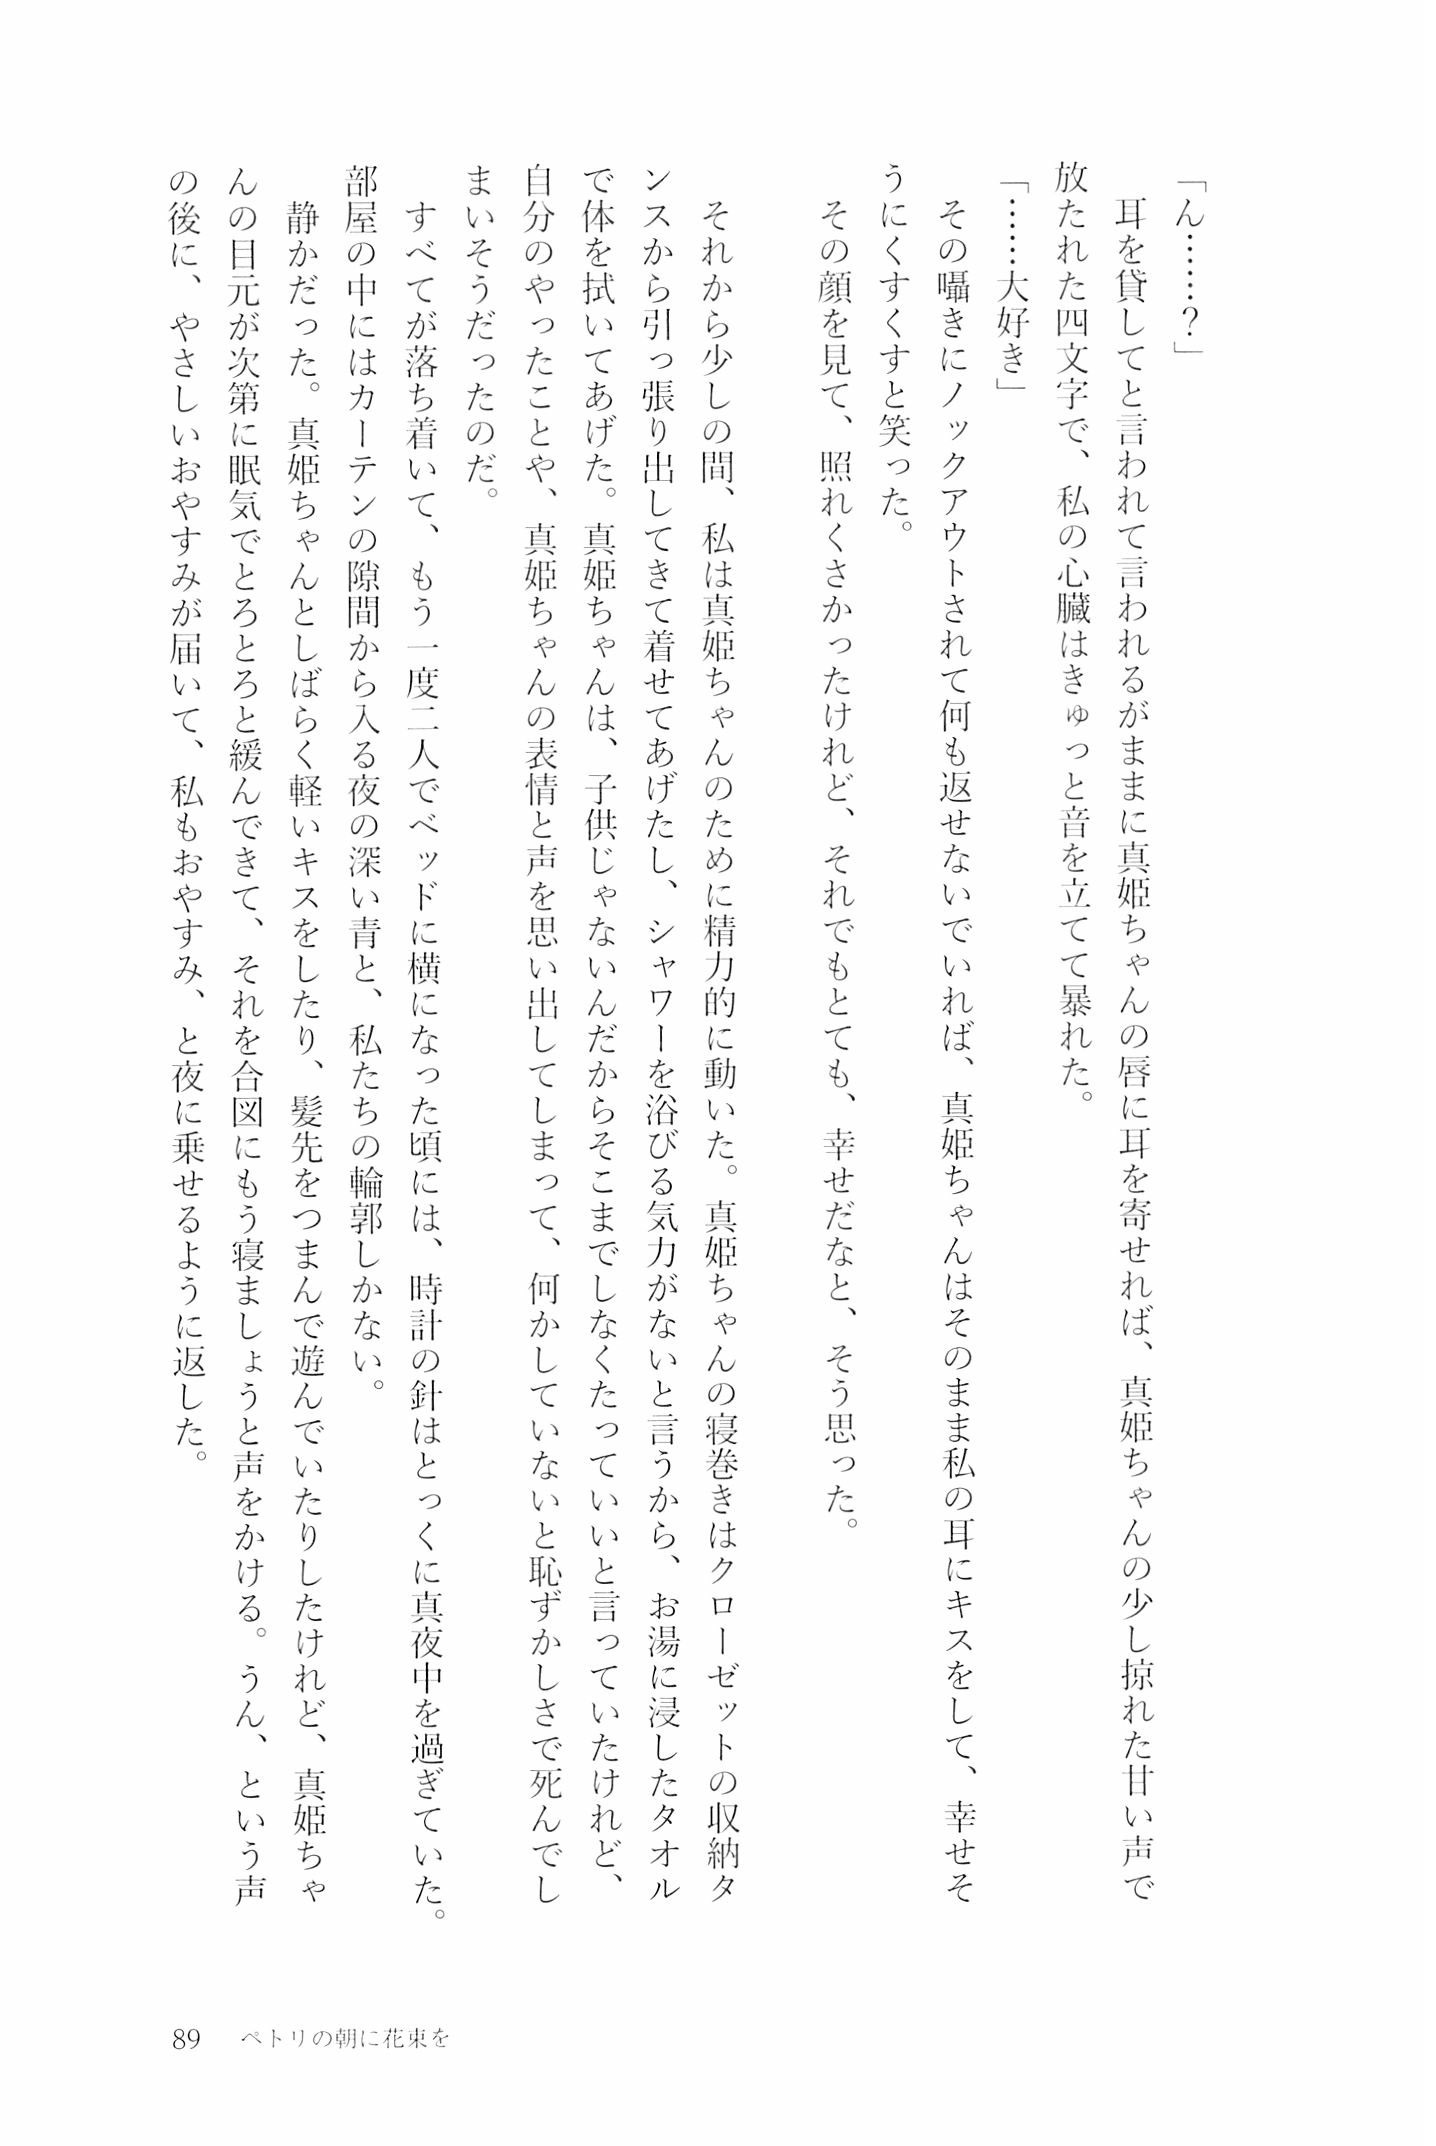 「ん……？」
耳を貸してと言われて言われるがままに真姫ちゃんの唇に耳を寄せれば、真姫ちゃんの少し掠れた甘い声で
放たれた四文字で、私の心臓はきゅっと音を立てて暴れた。
「……大好き」
その囁きにノックアウトされて何も返せないでいれば、真姫ちゃんはそのまま私の耳にキスをして、幸せそ
うにくすくすと笑った。
その顔を見て、照れくさかったけれど、それでもとても、幸せだなと、そう思った。
それから少しの間、私は真姫ちゃんのために精力的に動いた。真姫ちゃんの寝巻きはクローゼットの収納タ
ンスから引っ張り出してきて着せてあげたし、シャワーを浴びる気力がないと言うから、お湯に浸したタオル
で体を拭いてあげた。真姫ちゃんは、子供じゃないんだからそこまでしなくたっていいと言っていたけれど、
自分のやったことや、真姫ちゃんの表情と声を思い出してしまって、何かしていないと恥ずかしさで死んでし
まいそうだったのだ。
すべてが落ち着いて、もう一度二人でベッドに横になった頃には、時計の針はとっくに真夜中を過ぎていた。
部屋の中にはカーテンの隙間から入る夜の深い青と、私たちの輪郭しかない。
静かだった。真姫ちゃんとしばらく軽いキスをしたり、髪先をつまんで遊んでいたりしたけれど、真姫ちゃ
んの目元が次第に眠気でとろとろと緩んできて、それを合図にもう寝ましょうと声をかける。うん、という声
の後に、やさしいおやすみが届いて、私もおやすみ、と夜に乗せるように返した。
89　ペトリの朝に花束を